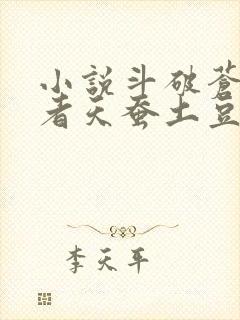 小說斗破蒼
者天蚕土豆
李天平